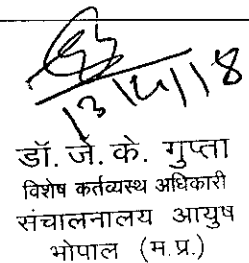 13/4/18
डॉ. जे. के. गुप्ता
विशेष कर्तव्यस्थ अधिकारी
संचालनालय आयुष
भोपाल (म.प्र.)